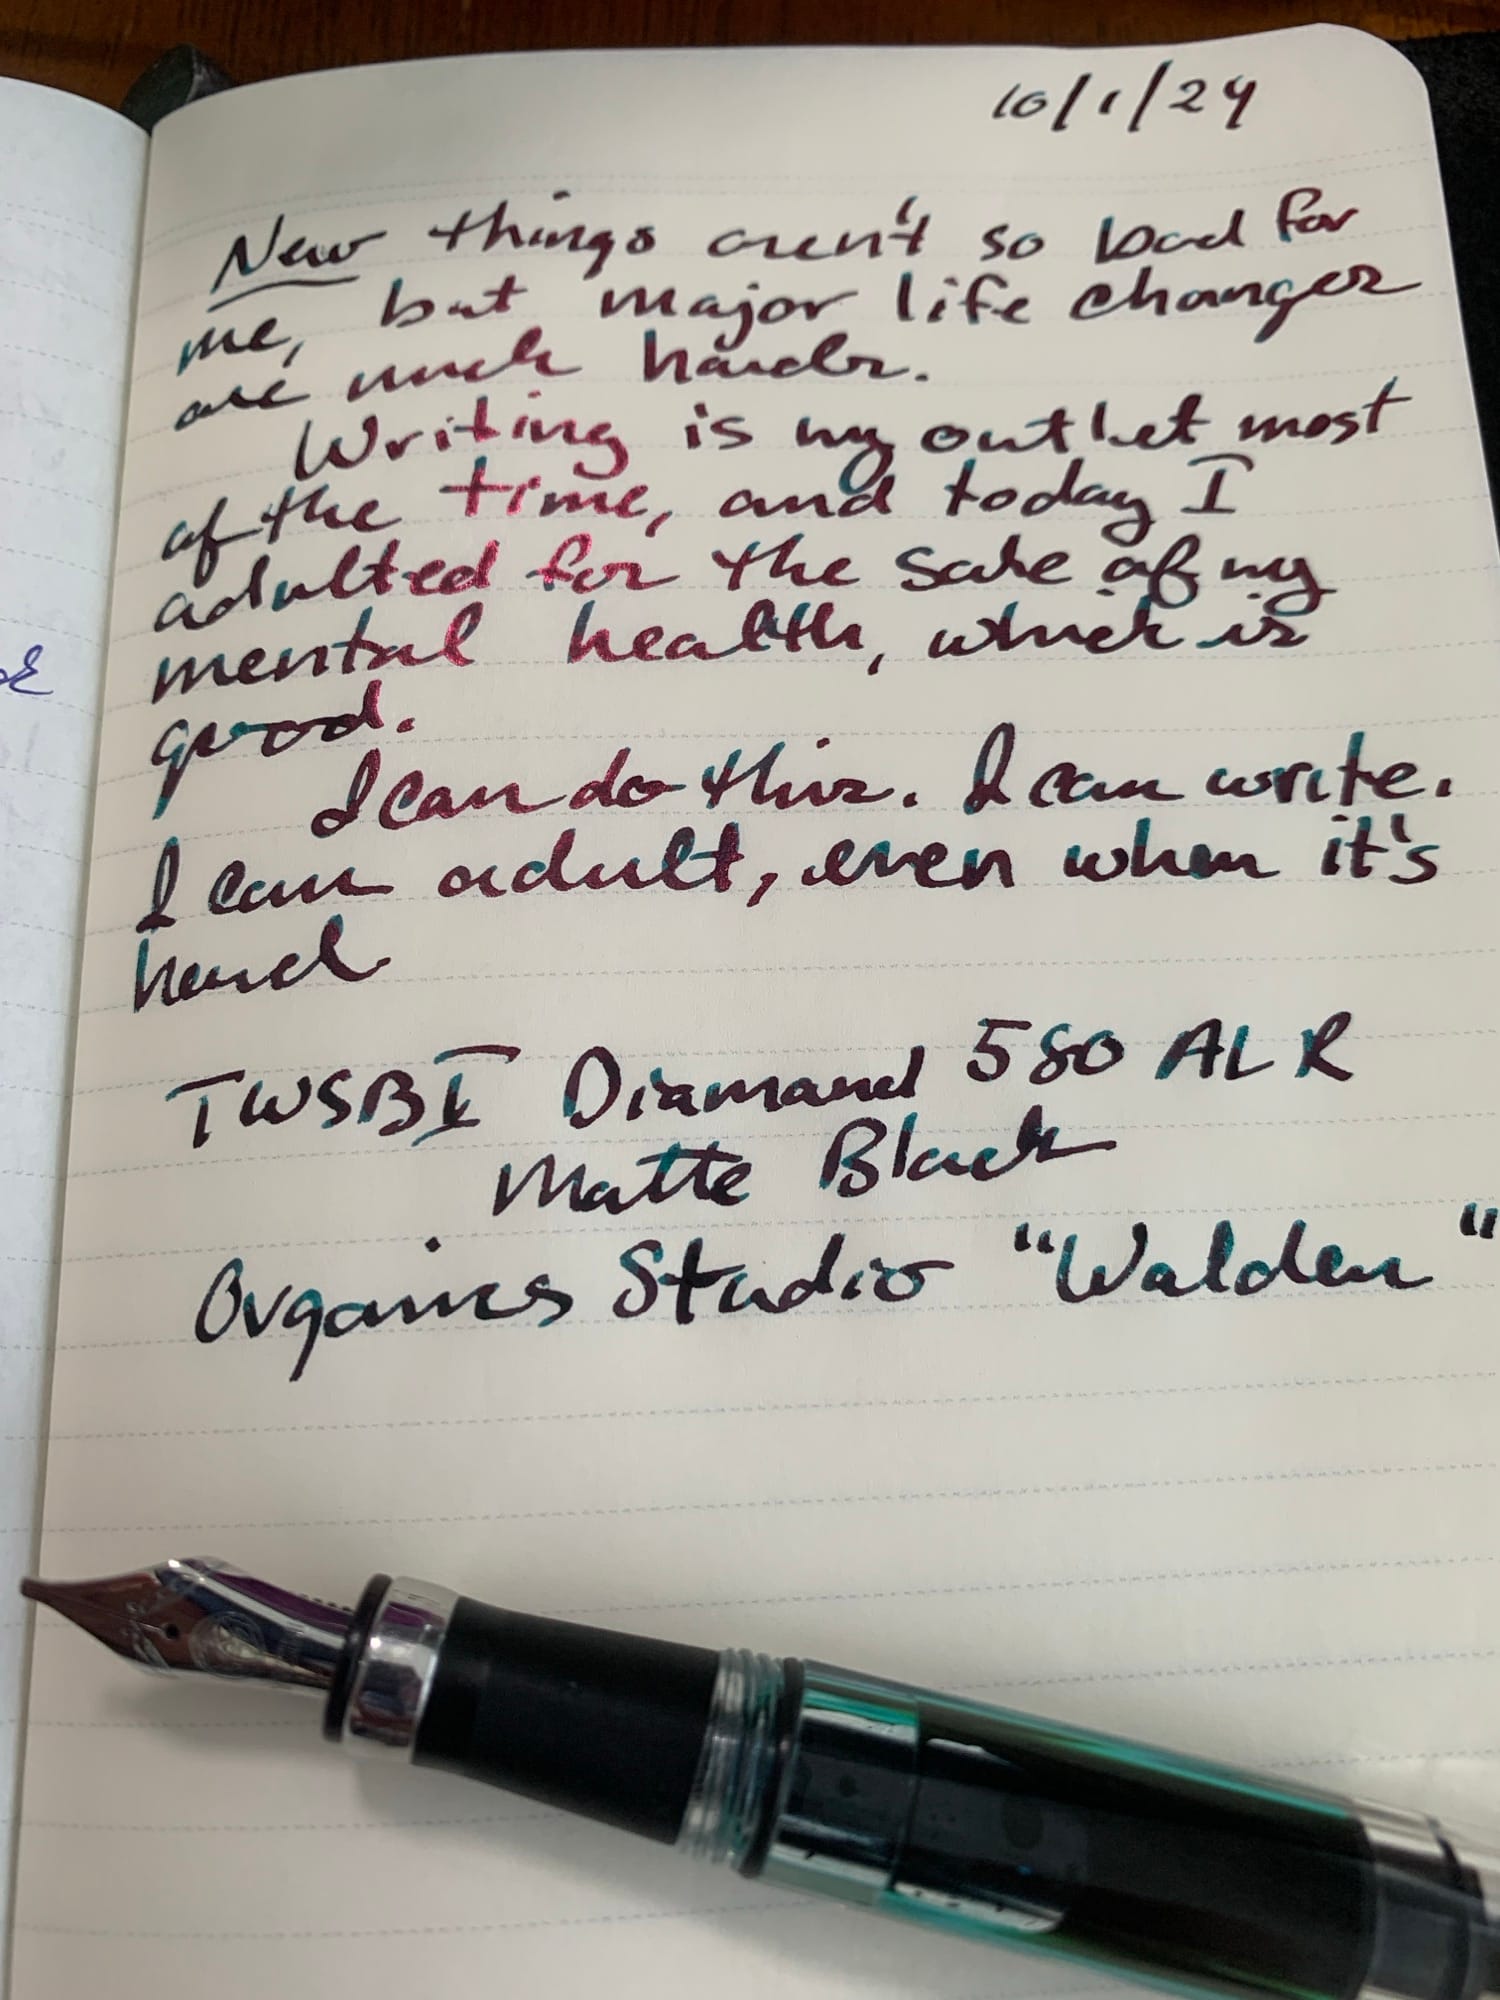 10/1/24
New things aren't so bad for
me, but major life changes
are much harder.
Writing is my outlet most
of the time, and today I
adulted for the sake of my
mental health, which is
good.
I can do this. I can write.
I can adult, even when it's
hard
TWSBI Diamond 580 ALR
Matte Black
Organics Studio "Walden"